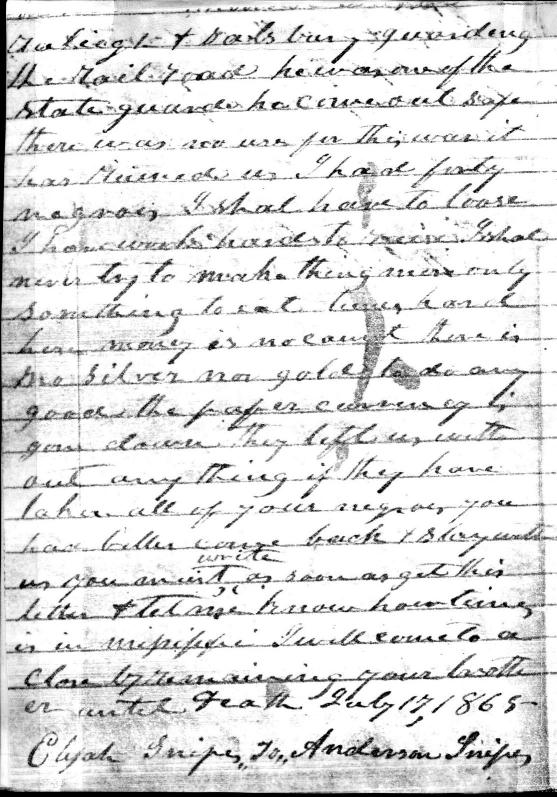 Raleigh & Salsbury guarding
the Rail road he was one of the
state guards he come out safe
there was no use for this war it
has Ruined us I had forty
negroes I shal have to loose
I have work hard to I shal
never try to make thing more only
something to eat times hard
here money is no caunt there is
no silver nor gold to do any
good the paper currency is
gon down they left us with
out any thing if they have
taken all of your negroes you
had better come back & stay with
us you must write as soon as get this
letter & let me know how times
is in missippi I will come to a
close by remaining your broth
er until Death July 17, 1865
Elijah Snipes, To, Anderson Snipes